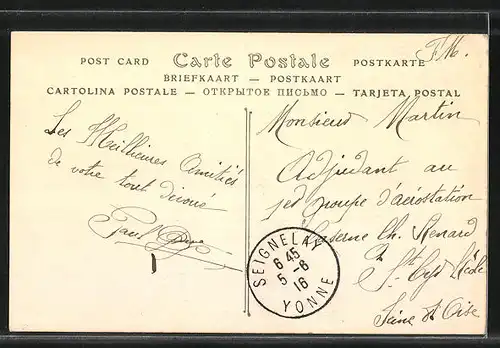 F M.
POST CARD Carte Postale POSTKARTE
BRIEFKAART — POSTKAART
CARTOLINA POSTALE — ОТКРЫТОЕ ПИСЬМО — TARJETA POSTAL
Les Meilleures Amitiés
de votre tout dévoué
Paul
Monsieur Martin
Adjudant au
1er groupe d'aérostation
Caserne Ch. Renard
St Cyr l'École
Seine et Oise
SEIGNELAY
6 45
5 -6
16
YONNE